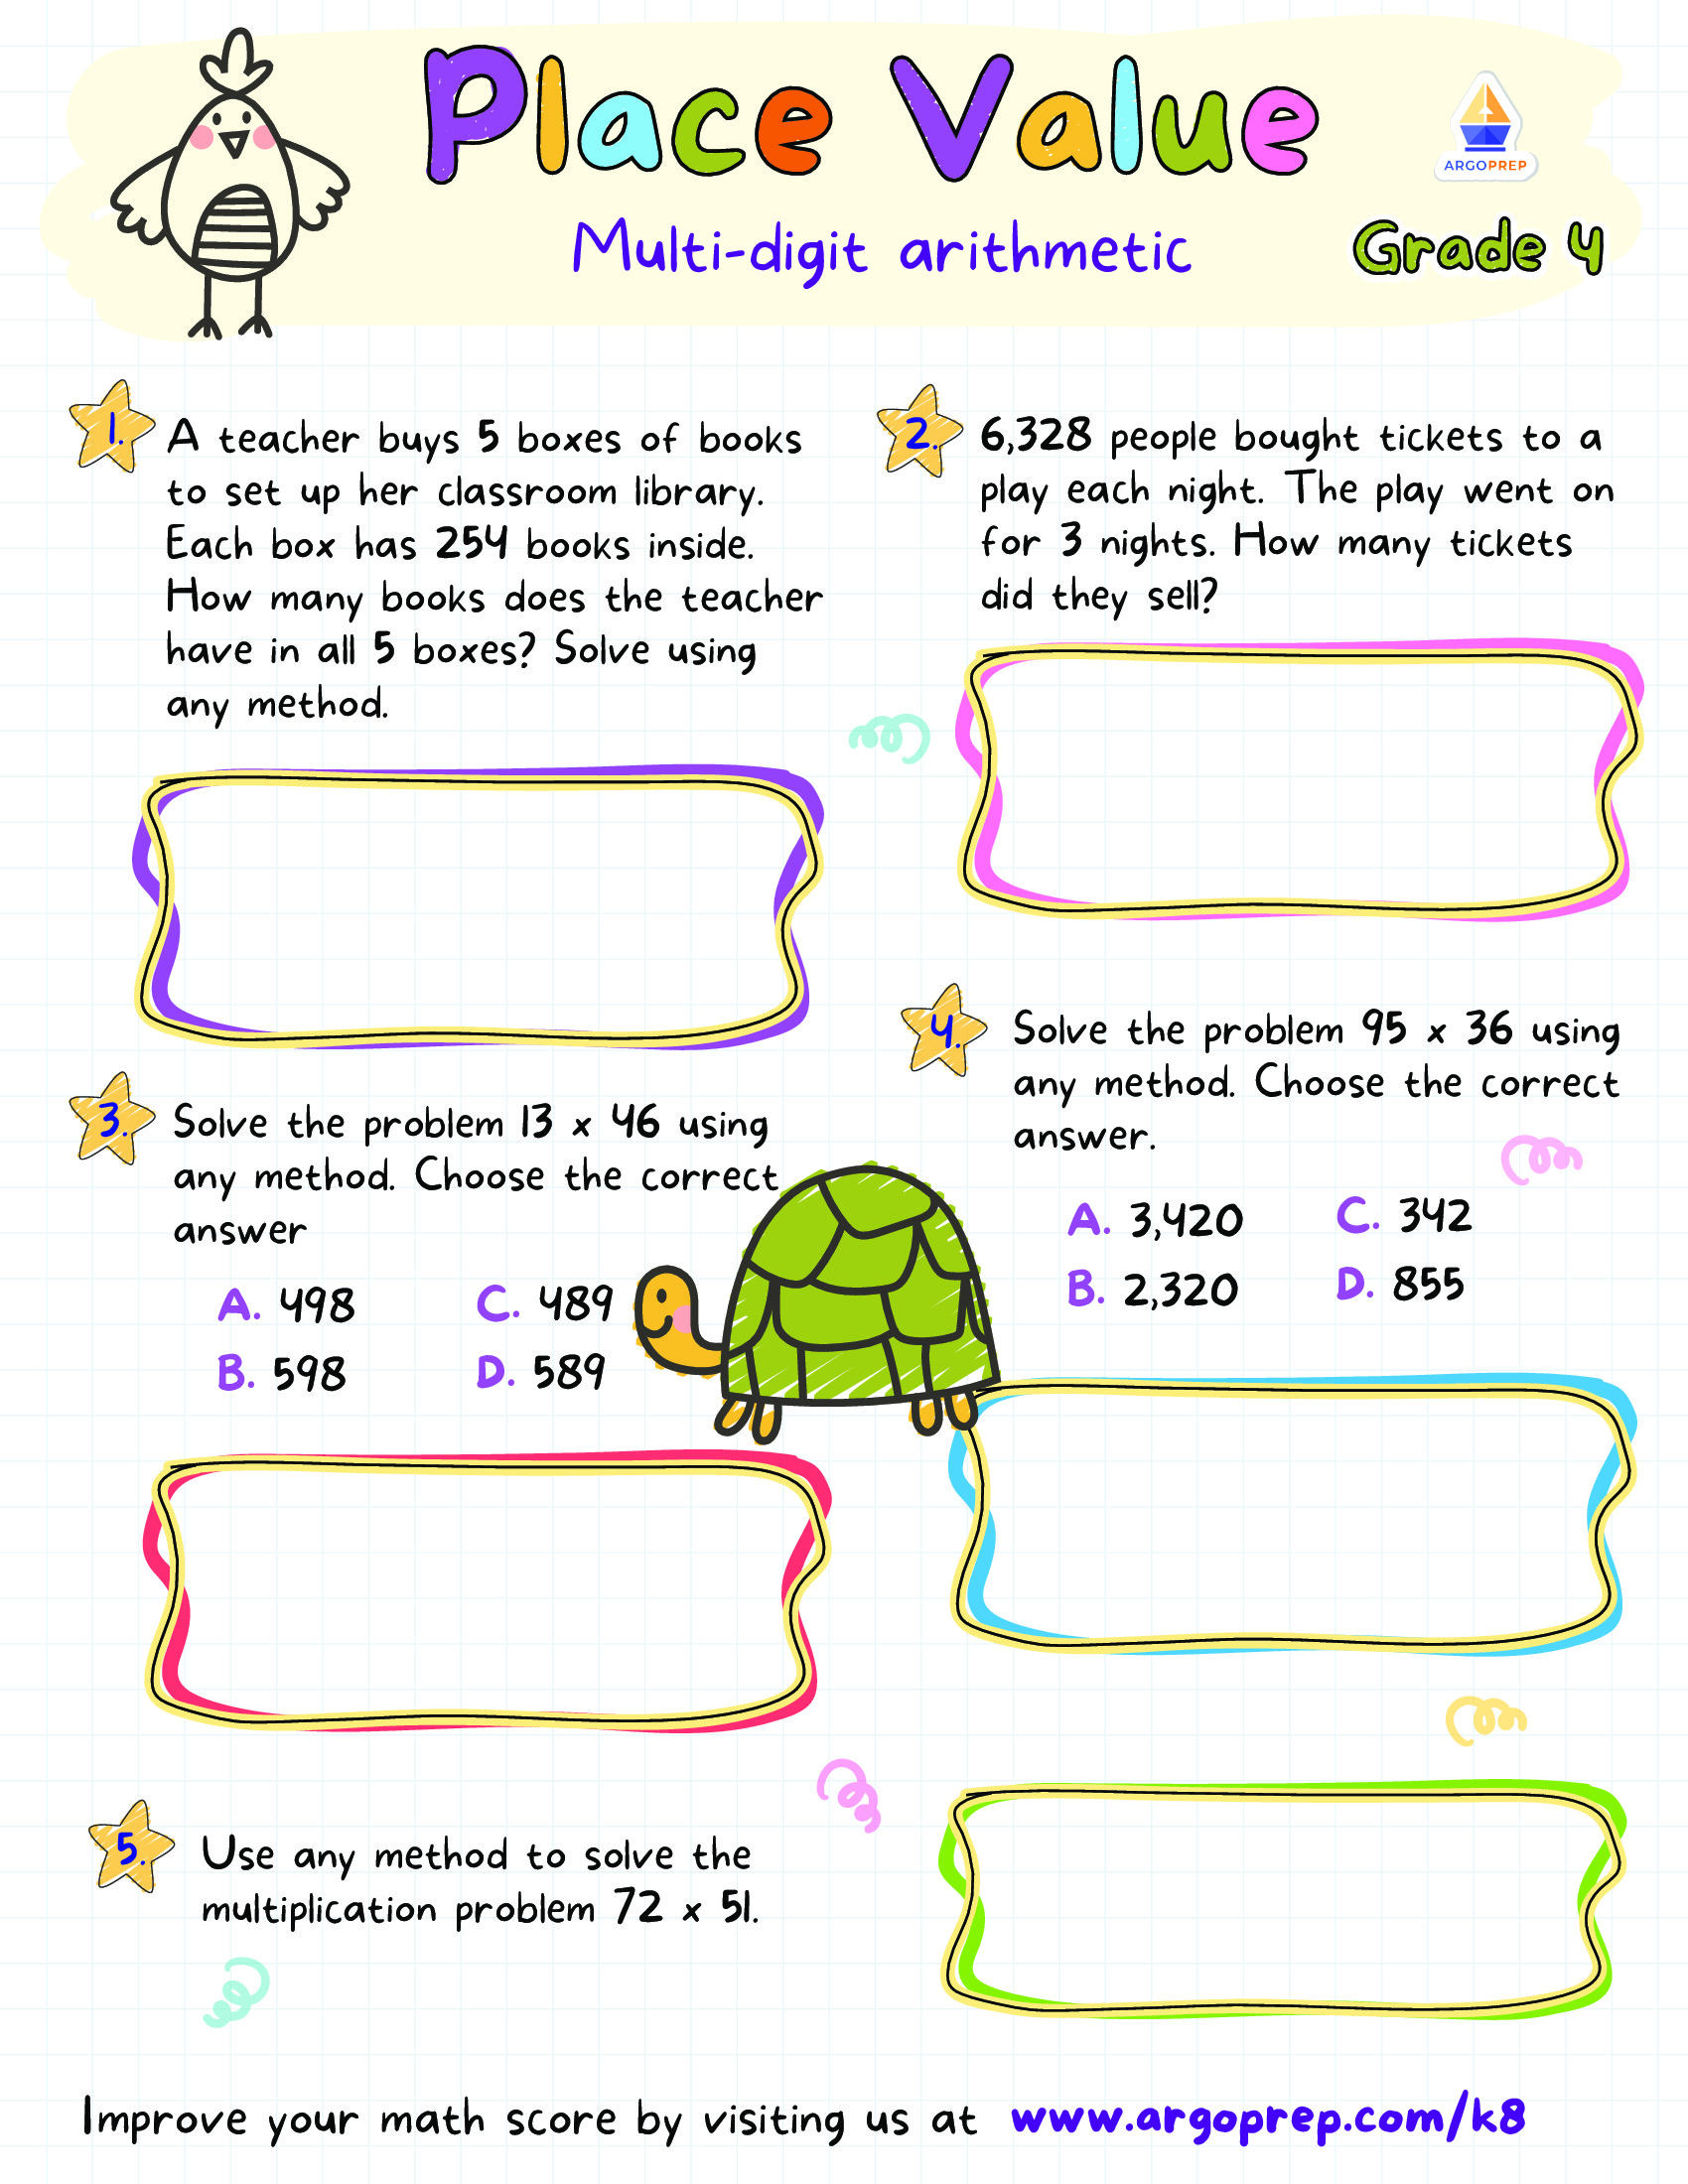 Place Value
ARGOPREP
Multi-digit arithmetic
Grade 4
1.
A teacher buys 5 boxes of books
to set up her classroom library.
Each box has 254 books inside.
How many books does the teacher
have in all 5 boxes? Solve using
any method.
2.
6,328 people bought tickets to a
play each night. The play went on
for 3 nights. How many tickets
did they sell?
3.
Solve the problem 13 x 46 using
any method. Choose the correct
answer
A. 498
C. 489
B. 598
D. 589
4.
Solve the problem 95 x 36 using
any method. Choose the correct
answer.
A. 3,420
C. 342
B. 2,320
D. 855
5.
Use any method to solve the
multiplication problem 72 x 51.
Improve your math score by visiting us at www.argoprep.com/k8